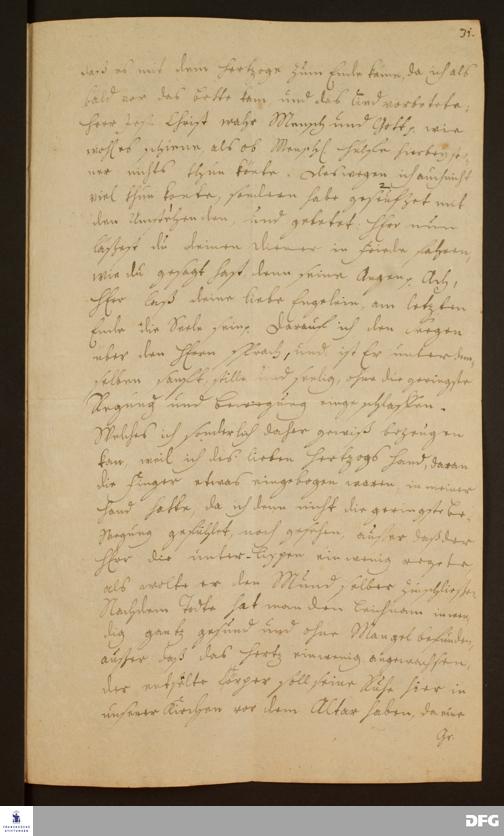 31.
daß es mit dem Hertzoge zum Ende käme, da ich als
bald vor das bette kam, und das Lied vorbetete:
Herr Jesu Christ wahr Mensch und Gott, wie
wohl es schiene, als ob Menschl. Hülffe hierbey
ner nichts thun könte. Deswegen ich auch nicht
viel thun konte, sondern habe geseufzet mit
den Umstehenden, und gebetet: HErr nun
läßest du deinen Diener in Friede fahren,
wie du gesagt hast, denn seine Augen. Ach,
HErr laß deine liebe Engelein, am letzten
Ende die Seele sein. Darauf ich den Seegen
über den HErrn sprach, und ist Er unter dem
selben sanfft, stille und seelig, ohne die geringste
Regung und bewegung eingeschlaffen.
Welches ich sonderlich daher gewiß bezeugen
kan, weil ich des lieben Hertzogs Hand, daran
die Finger etwas eingebogen waren, in meiner
Hand hatte, da ich denn nicht die geringste be-
wegung gefühlet, noch gesehen, außer daß der
HErr die unter-Lippen ein wenig regete
als wolte er den Mund selber zuschließen
Nach dem Tode hat man den Leichnam inwen
dig gantz gesund und ohne Mangel befunden,
außer daß das Hertz ein wenig angewachsen,
der entseelte Cörper soll seine Ruhe hier in
unserer Kirchen vor dem Altar haben, da eine
Gr
FRANCKESCHE
STIFTUNGEN
DFG